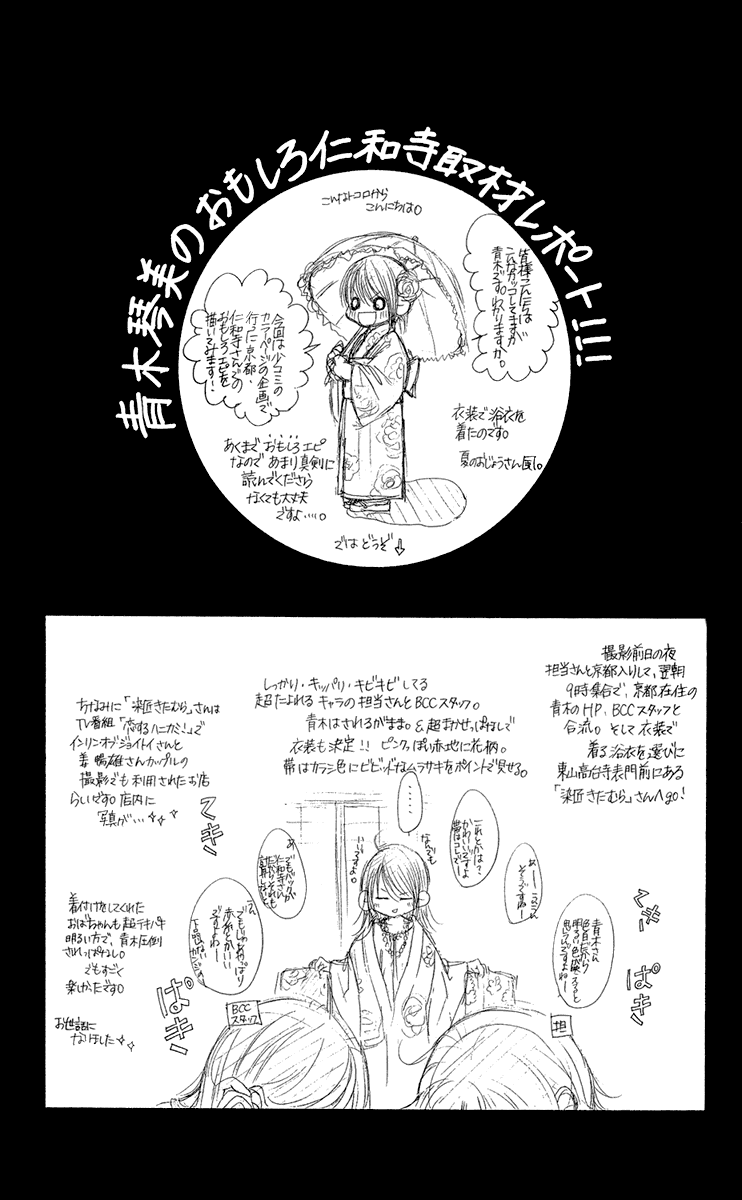 青木琴美のおもしろ仁和寺取材レポート!!!
こんなトコロから
こんにちは。
皆様こんにちは
こんなカッコしてますが
青木です。わかりますか。
今回は少コミの
カラーページの企画で
行った京都、
仁和寺さんでの
おもしろエピを
描いてみます!
衣装で浴衣を
着たのです。
夏のおじょうさん風。
あくまでおもしろエピ
なのであまり真剣に
読んでくださら
なくても大丈夫
ですよ……。
ではどうぞ↓
撮影前日の夜
担当さんと京都入りして、翌朝
9時集合で、京都在住の
青木のHP、BCCスタッフと
合流。そして衣装で
着る浴衣を選びに
東山高台寺表門前にある
「染匠きたむら」さんへgo!
しっかり・キッパリ・キビキビしてる
超たよれるキャラの担当さんとBCCスタッフ。
青木はされるがまま。&超まかせっぱなしで
衣装も決定!!ピンクっぽい赤地に花柄。
帯はカラシ色にビビッドなムラサキをポイントで見せる。
ちなみに「染匠きたむら」さんは
TV番組「恋するハニカミ!」で
インリンオブジョイトイさんと
姜暢雄さんカップルの
撮影でも利用されたお店
らしいです。店内に
写真が…
青木さん
色白だから
明るい色映えると
思うんですよねー
あーーうんうん
そうですねー
これとかは?
かわいいですよ
帯はコレでー
なんでも
……
いいですよ。
あ
でもバックが
仁和寺さん
だから
うん
でもじゃあやっぱり
赤地とかいい
ですよねー
テキ
パキ
テキ
パキ
着付けをしてくれた
おばちゃんも超テキパキ
明るい方で、青木圧倒
されっぱなし。
でもすごく
楽しかったです。
お世話に
なりました
BCC
スタッフ
担